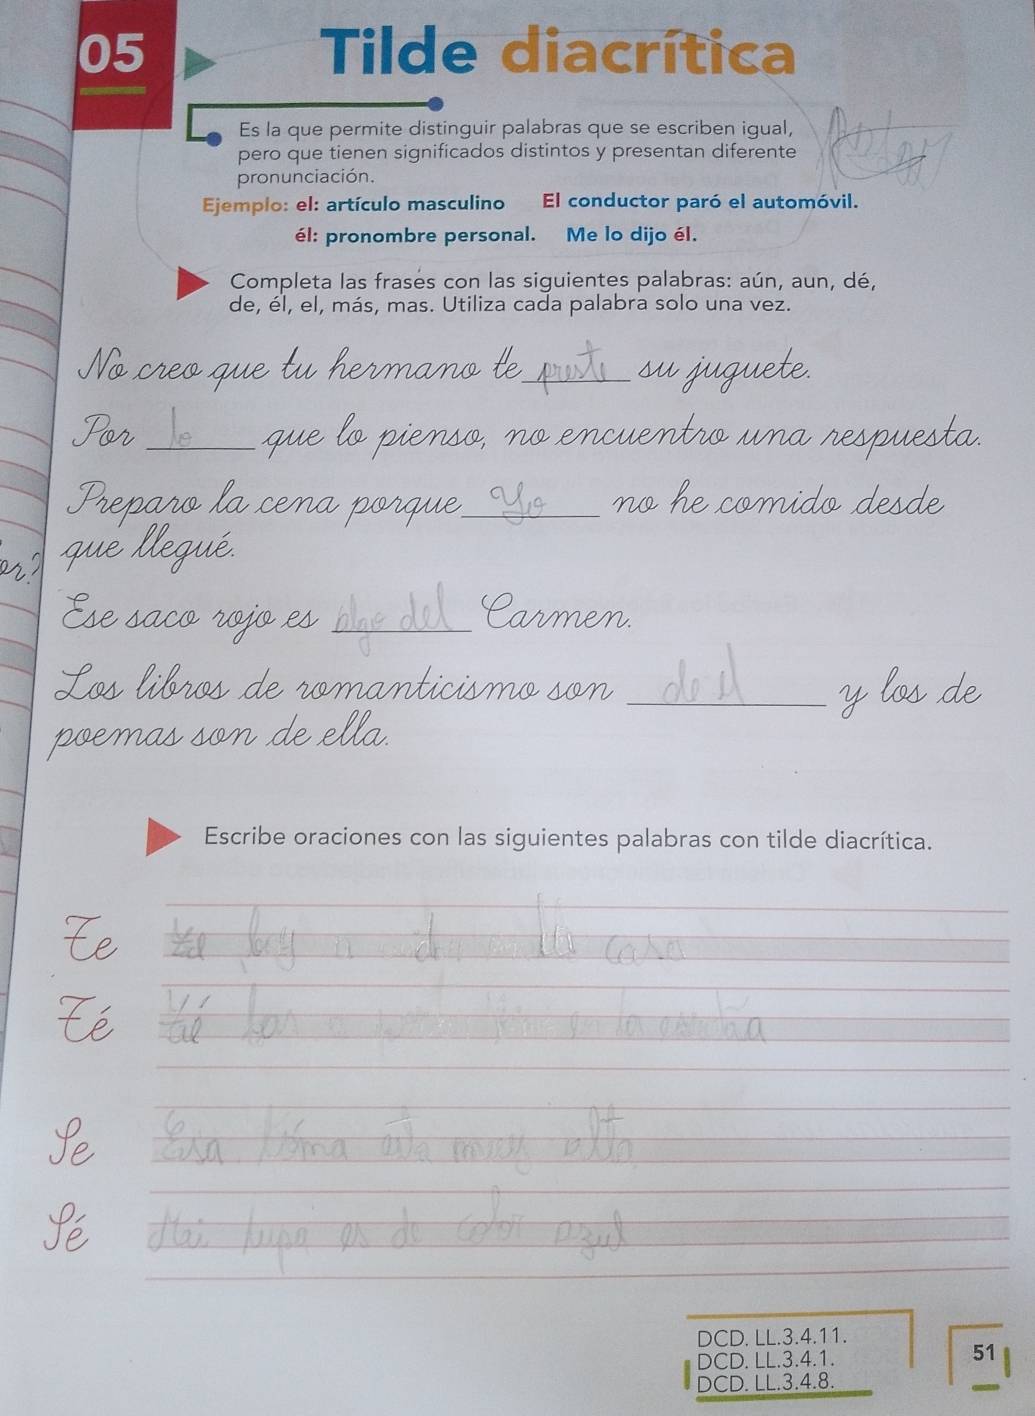 05
Tilde diacrítica
Es la que permite distinguir palabras que se escriben igual,
pero que tienen significados distintos y presentan diferente
pronunciación.
Ejemplo: el: artículo masculino El conductor paró el automóvil.
él: pronombre personal. Me lo dijo él.
Completa las frases con las siguientes palabras: aún, aun, dé,
de, él, el, más, mas. Utiliza cada palabra solo una vez.
No creo que tu hermano te preste su juguete.
Por lo que lo pienso, no encuentro una respuesta.
Preparo la cena porque yo no he comido desde
que llegué.
Ese saco rojo es algo del Carmen.
Los libros de romanticismo son de el y los de
poemas son de ella.
Escribe oraciones con las siguientes palabras con tilde diacrítica.
Te casa
Té en la
Se Esa loma esta muy alto
Sé Mai lupa es de color azul
DCD. LL.3.4.11.
DCD. LL.3.4.1.
DCD. LL.3.4.8.
51